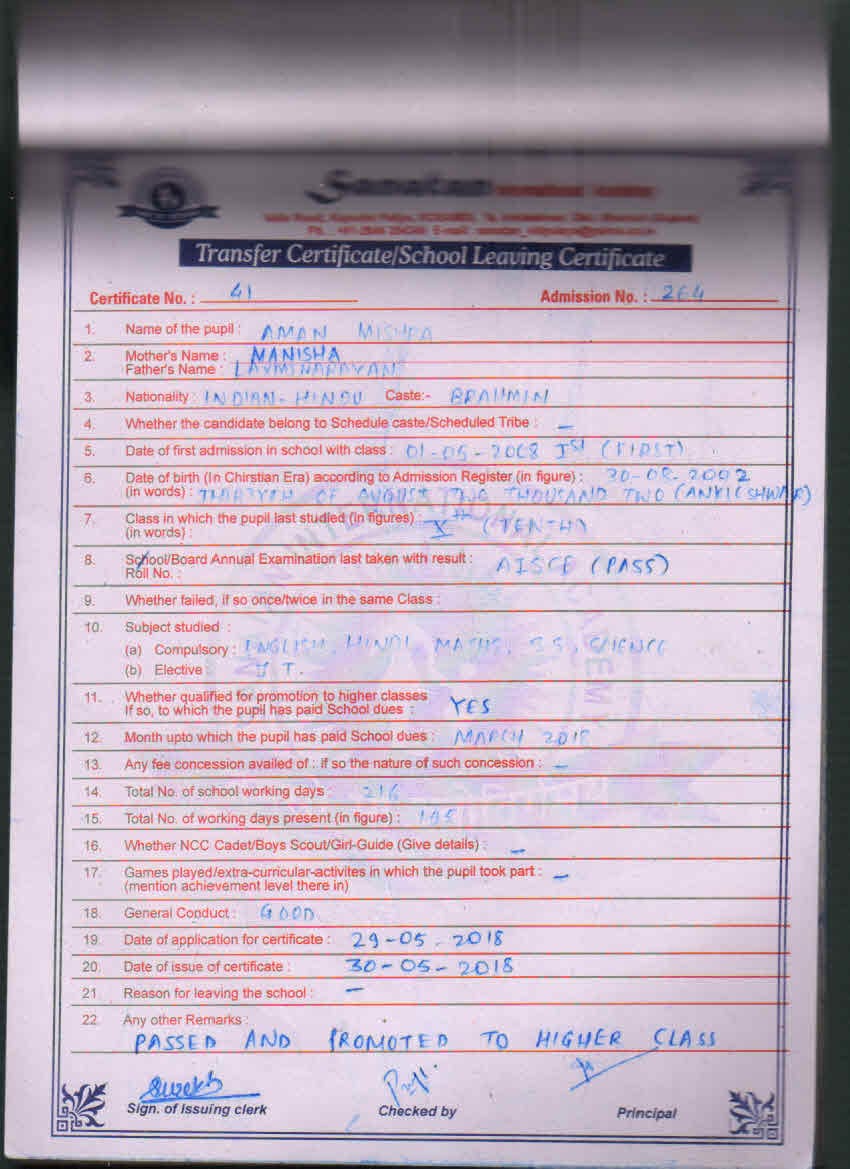 Sanatan
Transfer Certificate/School Leaving Certificate
Certificate No. : 41 Admission No. : 264
1. Name of the pupil : AMAN MISHRA
2. Mother's Name : MANISHA
Father's Name : LAXMINARAYAN
3. Nationality : INDIAN - HINDU Caste:- BRAHMIN
4. Whether the candidate belong to Schedule caste/Scheduled Tribe : –
5. Date of first admission in school with class : 01-05-2008 Ist (FIRST)
6. Date of birth (In Chirstian Era) according to Admission Register (in figure) : 30-08-2002
(in words) : THIRTYTH OF AUGUST TWO THOUSAND TWO (ANKLESHWAR)
7. Class in which the pupil last studied (in figures) : Xth (TENTH)
(in words) :
8. School/Board Annual Examination last taken with result : AISCE (PASS)
Roll No. :
9. Whether failed, if so once/twice in the same Class :
10. Subject studied :
(a) Compulsory : ENGLISH, HINDI, MATHS, S.S, SCIENCE
(b) Elective I T.
11. Whether qualified for promotion to higher classes
If so, to which the pupil has paid School dues : YES
12. Month upto which the pupil has paid School dues : MARCH 2018
13. Any fee concession availed of : if so the nature of such concession : –
14. Total No. of school working days : 216
15. Total No. of working days present (in figure) : 195
16. Whether NCC Cadet/Boys Scout/Girl-Guide (Give details) : –
17. Games played/extra-curricular-activites in which the pupil took part : –
(mention achievement level there in)
18. General Conduct : GOOD
19. Date of application for certificate : 29-05-2018
20. Date of issue of certificate : 30-05-2018
21. Reason for leaving the school : –
22. Any other Remarks :
PASSED AND PROMOTED TO HIGHER CLASS
Sign. of Issuing clerk Checked by Principal